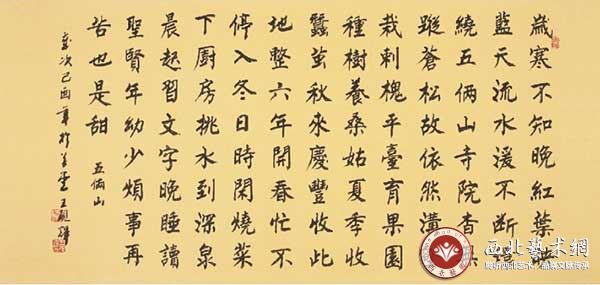 歲寒不知晚紅葉
藍天流水湲不斷
繞五倆山寺院杳
蹤蒼松故依然
栽刺槐平臺育果園
種樹養桑姑夏季收
蠶茧秋來慶豐收此
地整六年開春忙不
停入冬日時閑燒菜
下厨房挑水到深泉
晨起習文字晚睡讀
聖賢年幼少煩事再
苦也是甜 五倆山
歲次己酉年於 王
西北藝术網